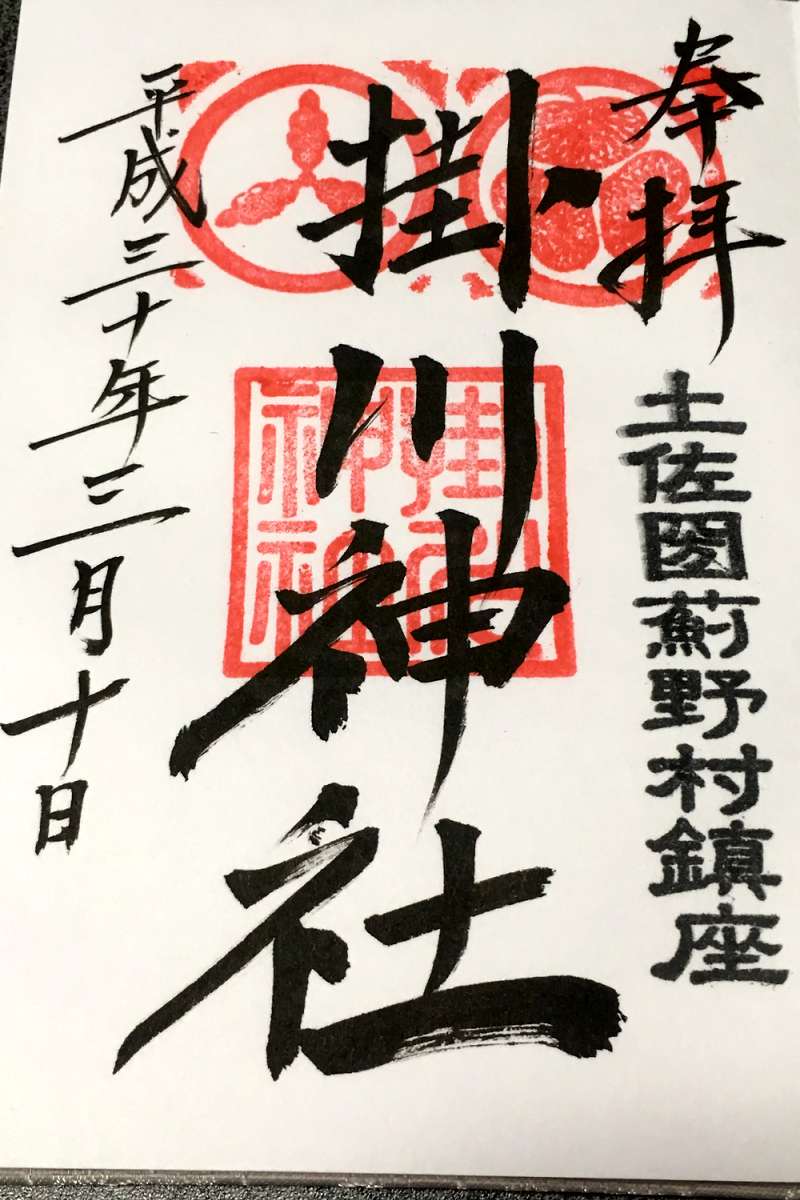 奉拝
土佐國薊野村鎮座
掛川神社
掛川神社
平成三十年三月十日